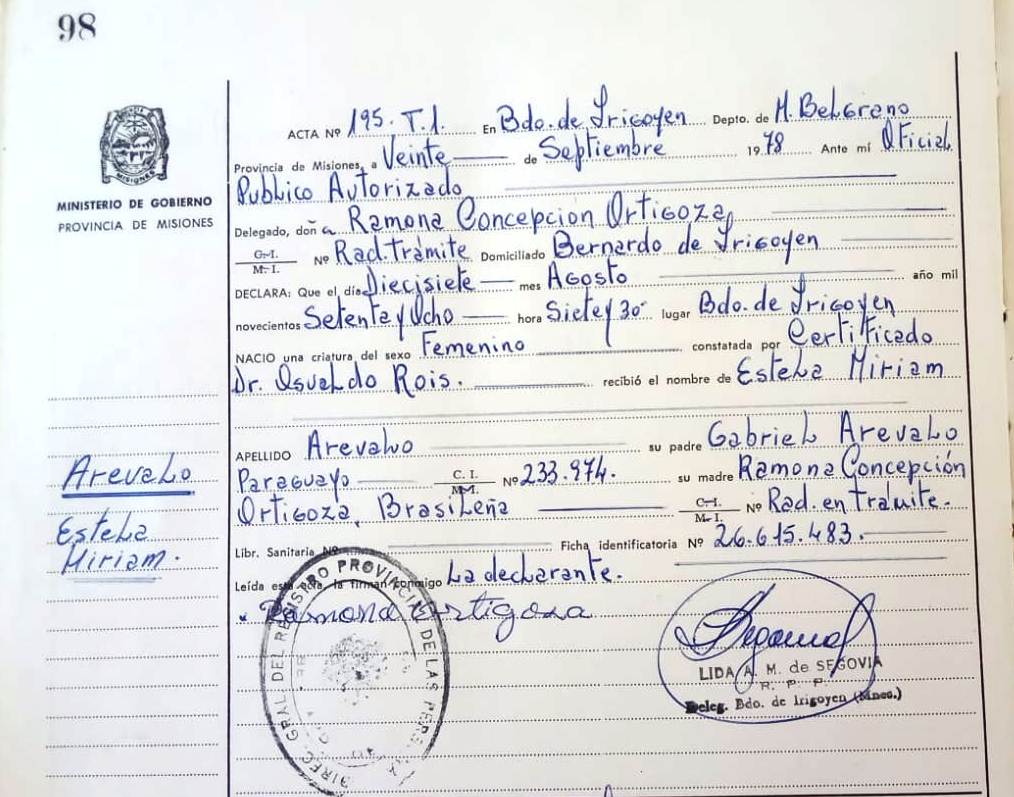 98
MINISTERIO DE GOBIERNO
PROVINCIA DE MISIONES
ACTA Nº 195. T.1. En Bdo. de Irigoyen Depto. de M. Belgrano
Provincia de Misiones, a Veinte de Septiembre 1978 Ante mí Oficial
Publico Autorizado
Delegado, doña Ramona Concepción Ortigoza
C. I.
M. I. Nº Rad. Trámite Domiciliado Bernardo de Irigoyen
DECLARA: Que el día Diecisiete mes Agosto año mil
novecientos Setenta y Ocho hora Siete y 30 lugar Bdo. de Irigoyen
NACIO una criatura del sexo Femenino constatada por Certificado
Dr. Osvaldo Rois. recibió el nombre de Estela Miriam
APELLIDO Arevalo su padre Gabriel Arevalo
Paraguayo C. I. M. I. Nº 233.974. su madre Ramona Concepción
Ortigoza, Brasileña C. I. M. I. Nº Rad. en trámite.
Libr. Sanitaria Nº Ficha identificatoria Nº 26.615.483.
Leída esta acta, la firman conmigo La declarante.
Ramona Ortigoza
Arevalo
Estela
Miriam.
DIREC. GRAL DEL REGISTRO PROVINCIAL DE LAS PERS.
LIDA A. M. de SEGOVIA
R. P. P.
Deleg. Bdo. de Irigoyen (Mnes.)